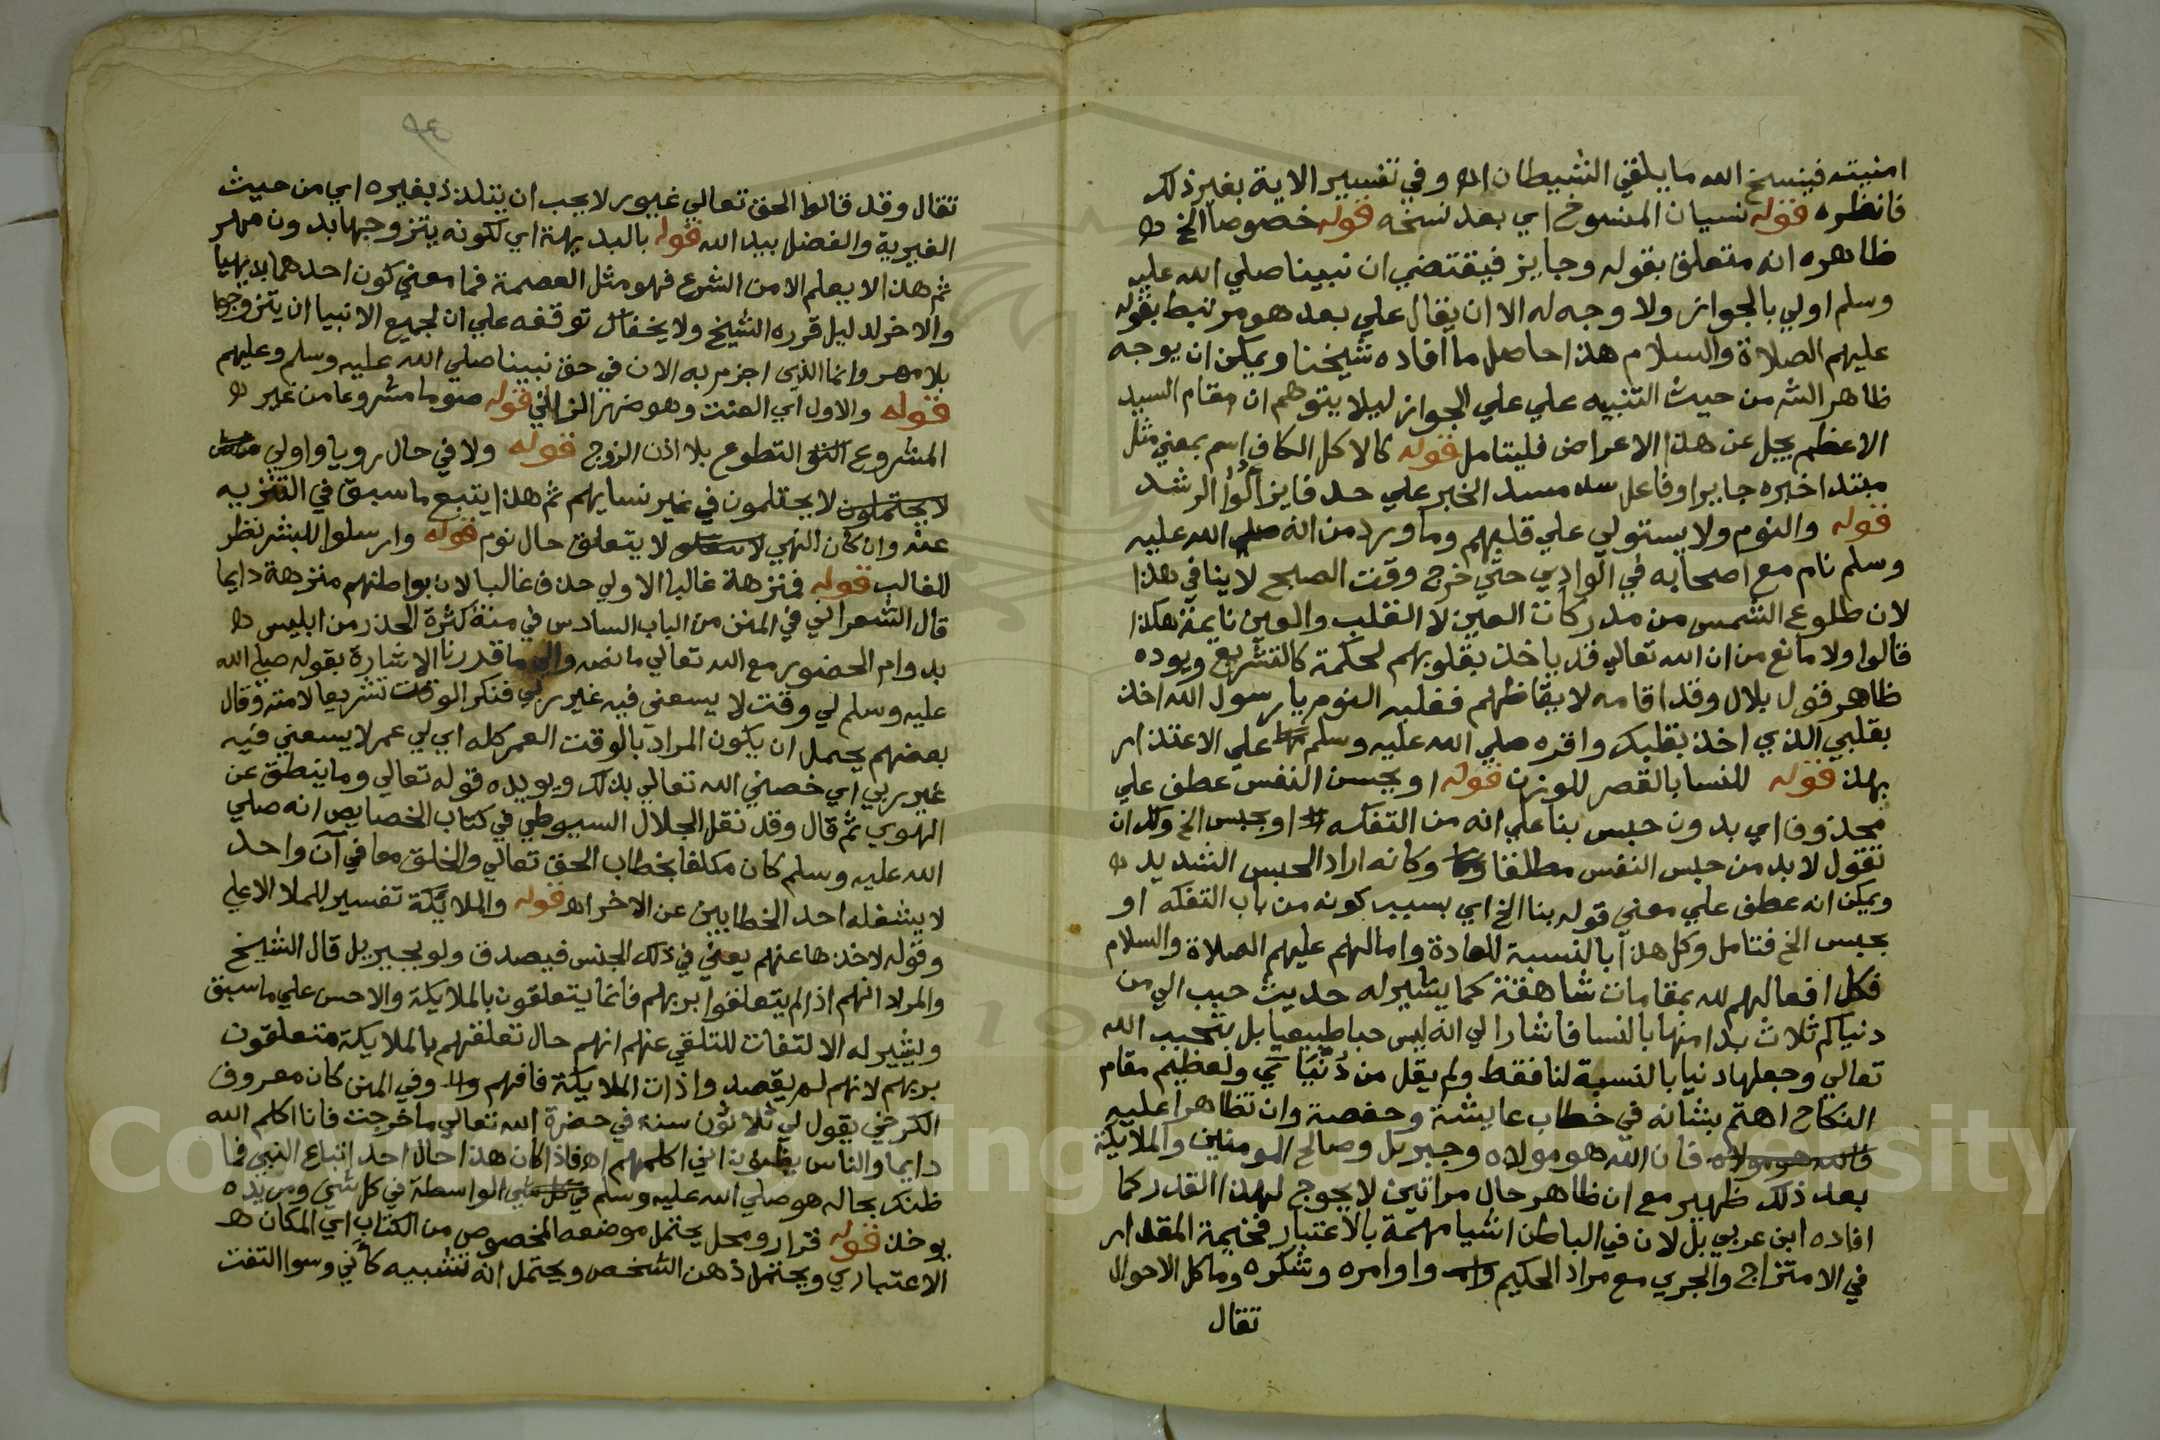 امنيته فينسخ الله ما يلقي الشيطان اه وفي تفسير الاية بغير ذلك
فانظره قوله نسيان المنسوخ اي بعد نسخه قوله خصوصا الخ
ظاهره انه متعلق بقوله وجايز فيقتضي ان نبينا صلي الله عليه
وسلم اولي بالجواز ولا وجه له الا ان يقال علي بعد هو مرتبط بقوله
عليهم الصلاة والسلام هذا حاصل ما افاده شيخنا ويمكن ان يوجه
ظاهر الش من حيث التنبيه علي علي الجواز ليلا يتوهم ان مقام السيد
الاعظم يجل عن هذا الاعراض فليتامل قوله كالاكل الكاف اسم بمعني مثل
مبتدا خبره جايز او فاعل سد مسد الخبر علي حد فايز اُلُوا الرشد
قوله والنوم ولا يستولي علي قلبهم وما ورد من انه صلي الله عليه
وسلم نام مع اصحابه في الوادي حتي خرج وقت الصبح لا ينافي هذا
لان طلوع الشمس من مدركات العين لا القلب والعين نايمة هكذا
قالوا ولا مانع من ان الله تعالي قد ياخذ بقلوبهم لحكمة كالتشريع ويوده
ظاهر قول بلال وقد اقامه لايقاظهم فغلبه النوم يا رسول الله اخذ
بقلبي الذي اخذ بقلبك واقره صلي الله عليه وسلم علي الاعتذار
بهذ قوله للنسا بالقصر للوزن قوله او بحبس النفس عطف علي
محذوف اي بدون حبس بنا علي انه من التفكه او بحبس الخ ولك ان
تقول لا بد من حبس النفس مطلقا وكانه اراد الحبس الشديد
ويمكن انه عطف علي معني قوله بنا الخ اي بسبب كونه من باب التفكه او
بحبس الخ فتامل وكل هذا بالنسبة للعادة وامالهم عليهم الصلاة والسلام
فكل افعالهم لله بمقامات شاهقة كما يشير له حديث حبب الي من
دنياكم ثلاث بدا منها بالنسا فاشار الي انه ليس حبا طبيعيا بل بتحبيب الله
تعالي وجعلها دنيا بالنسبة لنا فقط ولم يقل من دُنْيَايَ ولعظيم مقام
النكاح اهتم بشانه في خطاب عايشة وحفصة وان تظاهرا عليه
فالله هو مولاه فان الله هو مولاه وجبريل وصالح المومنين والملايكة
بعد ذلك ظهير مع ان ظاهر حال مراتين لا يحوج لهذا القدر كما
افاده ابن عربي بل لان في الباطن اشيا مهمة بالاعتبار فخيمة المقدار
في الامتزاج والجري مع مراد الحكيم واوامره وشكره وما كل الاحوال
تقال
تقال وقد قالوا الحق تعالي غيور لا يحب ان يتلذذ بغيره اي من حيث
الغيرية والفضل بيد الله قوله بالبديهة اي لكونه يتزوجها بدون مهر
ثم هذا لا يعلم الا من الشرع فهو مثل العصمة فما معني كون احدهما بديهيا
والاخر لدليل قرره الشيخ ولا يخفاك توقفه علي ان لجميع الانبيا ان يتزوجوا
بلا مهر وانما الذي اجزم به الان في حق نبينا صلي الله عليه وسلم وعليهم
قوله والاول اي العنت وهو ضرر الزاني قوله صوما مشروعا من غير
المشروع التطوع بلا اذن الزوج قوله ولا في حال رويا واولي
لا يحتملون لا يحتلمون في غير نسايهم ثم هذا يتبع ما سبق في التنزيه
عنه وان كان النهي لا يتعلق حال نوم قوله وارسلوا للبشر نظر
للغالب قوله فمنزهة غالبا الاولي حذف غالبا لان بواطنهم منزهة دايما
قال الشعراني في المنن من الباب السادس في منة كثرة الحذر من ابليس
بدوام الحضور مع الله تعالي ما نصه والي ما قدرنا الاشارة بقوله صلي الله
عليه وسلم لي وقت لا يسعني فيه غير ربي فنكر الوقت تشريعا لامته وقال
بعضهم يحتمل ان يكون المراد بالوقت العمر كله اي لي عمر لا يسعني فيه
غير ربي اي خصني الله تعالي بذلك ويويده قوله تعالي وما ينطق عن
الهوي ثم قال وقد نقل الجلال السيوطي في كتاب الخصايص انه صلي
الله عليه وسلم كان مكلفا بخطاب الحق تعالي والخلق معا في آن واحد
لا يشغله احد الخطابين عن الاخر اه قوله والملايكة تفسير للملا الاعلي
وقوله لاخذها عنهم يعني في ذلك الجنس فيصدق ولو بجبريل قال الشيخ
والمراد انهم اذا لم يتعلقوا بربهم فانما يتعلقون بالملايكة والاحسن علي ما سبق
ويشير له الالتفات للتلقي عنهم انهم حال تعلقهم بالملايكة متعلقون
بربهم لانهم لم يقصد واذات الملايكة فافهم وفي المنن كان معروف
الكرخي يقول لي ثلاثون سنة في حضرة الله تعالي ما خرجت فانا اكلم الله
دايما والناس يظنون اني اكلمهم اه فاذا كان هذا حال احد اتباع النبي فما
ظنك بحاله هو صلي الله عليه وسلم الواسطة في كل شي ومن يده
يوخذ قوله قرار ومحل يحتمل موضعه المخصوص من الكتاب اي المكان
الاعتباري ويحتمل ذهن الشخص ويحتمل انه تشبيه كأني وسوا التفت